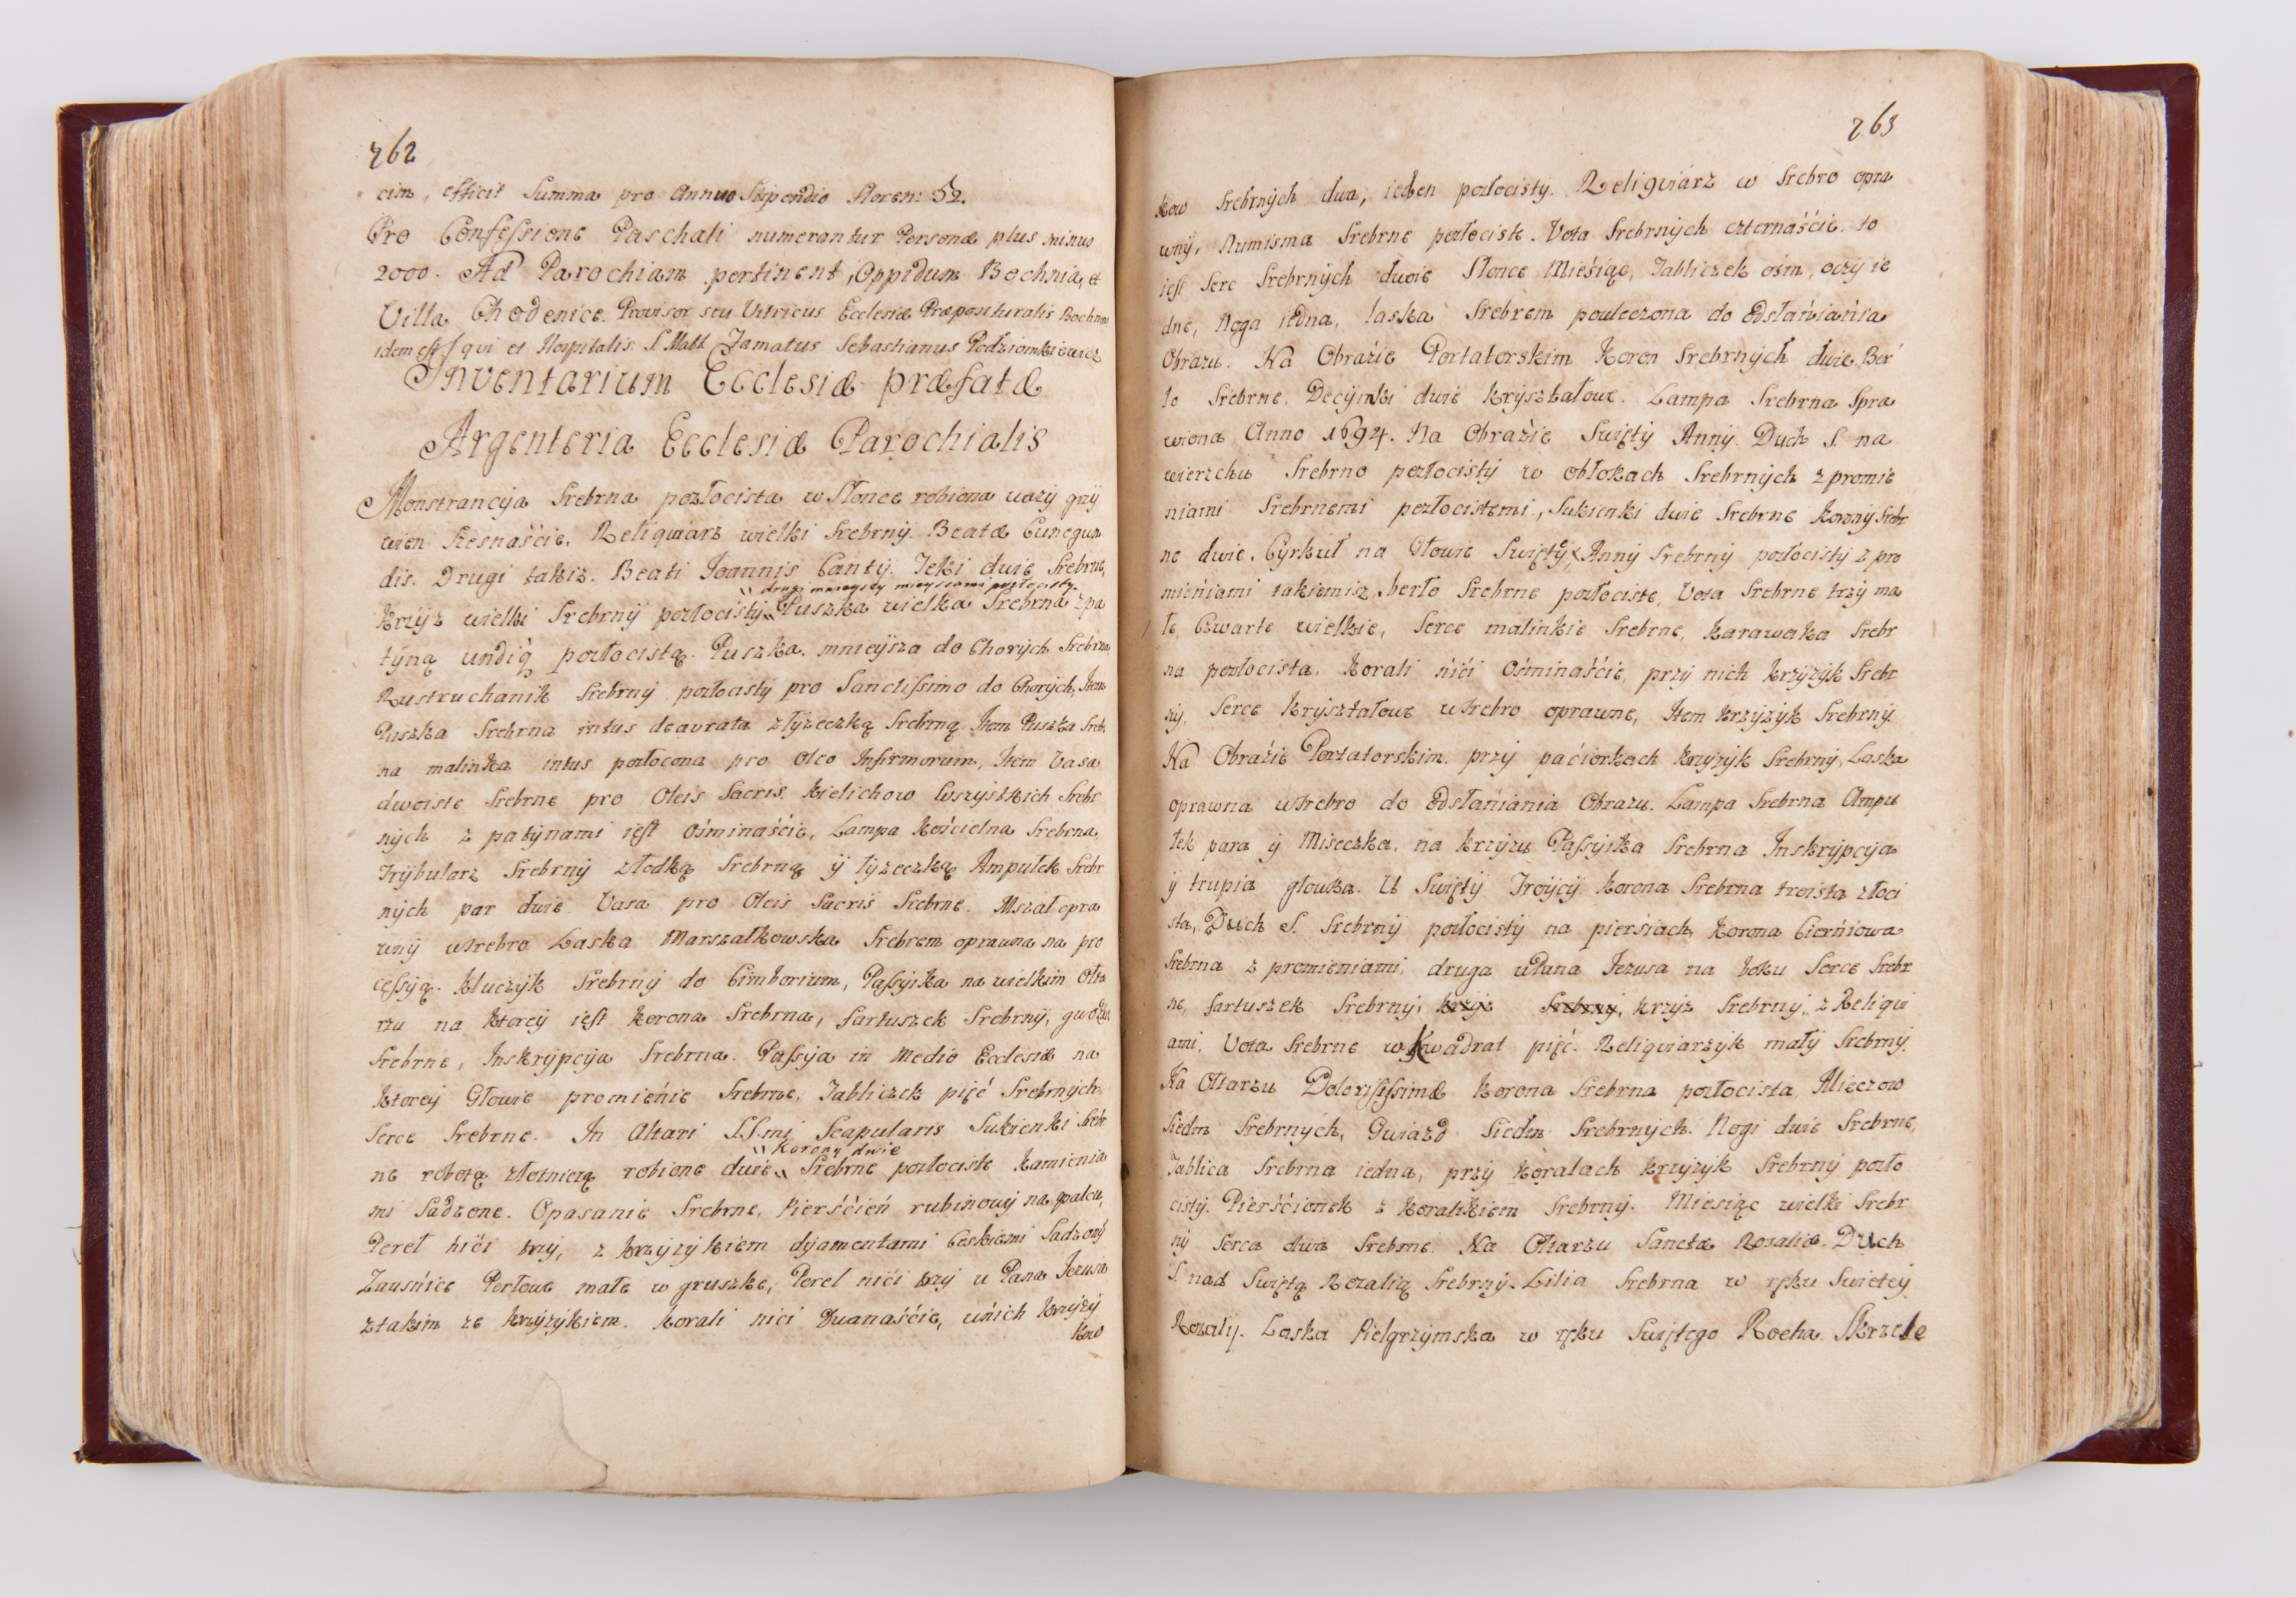 762
cim, efficit Summa pro Annuo Stipendio Floren: 52.
Pro Confessione Paschali numerantur Personæ plus minus
2000. Ad Parochiam pertinent, Oppidum Bochnia, et
Villa Chodenice. Provisor seu Vitricus Ecclesiæ Præposituralis Bochnen
idem est qui et Hospitalis S. Matt Famatus Sebastianus Podziomkiewicz
Inventarium Ecclesiæ præfatæ
Argenteria Ecclesiæ Parochialis
Monstrancÿa Srebrna pozłocista w Słonce robiona wazÿ grzÿ
wien Szesnaśćie. Reliquiarz wielki Srebrnÿ. Beatæ Cunegun
dis. Drugi takiz. Beati Joannis Cantÿ. Jeki dwie Srebrne,
drugi mnieyszy mieyscami pozłocisty
Krzÿz wielki Srebrnÿ pozłocistÿ Puszka wielka Srebrna z pa
tÿną undiq pozłocistą. Puszka mnieÿsza do Chorÿch Srebrna,
Rustruchanik Srebrnÿ pozłocistÿ pro Sanctissimo do Chorÿch, Item
Puszka Srebrna intus deaurata złÿzeczką Srebrną. Item Puszka Srebr
na malinka intus pozłocona pro Oleo Infirmorum, Item Vasa
dwoiste Srebrne pro Oleis Sacris. Kielichow Wszystkich Srebr
nÿch z patÿnami iest Ośminaśćie, Lampa Kośćielna Srebrna,
Trÿbularz Srebrnÿ złodką Srebrną ÿ łÿzeczką Ampułek Srebr
nÿch par dwie. Vasa pro Oleis Sacris Srebrne. Mszał opra
wnÿ wsrebro Laska Marszałkowska Srebrem oprawna na pro
cessÿą. Kluczÿk Srebrnÿ do Cimborium, Passÿika na wielkim Ołta
rzu na Ktoreÿ iest Korona Srebrna, fartuszek Srebrnÿ, gwoździe
Srebrne, Inskrÿpcÿa Srebrna. Passÿa in Medio Ecclesiæ na
Ktoreÿ Głowie promieńie Srebrne, Tabliczek pięć Srebrnÿch,
Serce Srebrne. In Altari SS.mi Scapularis Sukienki Srebr
Korony dwie
ne robotą złotniczą robione dwie Srebrne pozłociste Kamienia
mi Sadzone. Opasanie Srebrne, Pierśćień rubinowÿ na palcu,
Pereł nići trzÿ, z krzÿzÿkiem dÿamentami Ceskiemi Sadzonÿ
Zausńice Perłowe małe w gruszkę, Pereł nići trzÿ u Pana Jezusa
ztakim ze krzÿzÿkiem. Korali nici Dwanaśćie, unich krzÿzÿ
kow
763
kow Srebrnÿch dwa, ieden pozłocistÿ. Reliquiarz w Srebro opra
wnÿ, Numisma Srebrne pozłociste. Vota Srebrnÿch czternaśćie. to
iest Serc Srebrnÿch dwoie Słonce Mieśiąc, Tabliczek ośm, oczÿ ie
dne, Noga iedna, laska Srebrem powleczona do Odsłańiańia
Obrazu. Na Obraźie Portatorskim Koron Srebrnÿch dwie Ber
ło Srebrne, Decÿmki dwie krÿształowe. Lampa Srebrna Spra
wiona Anno 1694. Na Obraźie Swiętÿ Annÿ. Duch S. na
wierzchu Srebrno pozłocistÿ w obłokach Srebrnÿch z promie
niami Srebrnemi pozłocistemi, Sukienki dwie Srebrne Koronÿ Srebr
ne dwie. Cÿrkuł na Głowie Swiętÿ Annÿ Srebrnÿ pozłocistÿ z pro
mieńiami takiemisz, berło Srebrne pozłociste, Vota Srebrne trzÿ ma
łe, Czwarte wielkie, Serce malinkie Srebrne, Karawaka Srebr
na pozłocista, Korali nići Ośminaśćie, przÿ nich krzÿzÿk Srebr
nÿ, Serce Krÿształowe wsrebro oprawne, Item krzÿzÿk Srebrnÿ.
Na Obraźie Portatorskim przÿ paćiorkach krzÿzÿk Srebrnÿ, Laska
oprawna wsrebro do Odsłańiania Obrazu. Lampa Srebrna Ampu
łek para ÿ Miseczka, na krzÿzu Passÿika Srebrna Inskrÿpcÿa
ÿ trupia głowka. U Swiętÿ Troÿcÿ Korona Srebrna troista złoci
sta, Duch S. Srebrnÿ pozłocistÿ na pierśiach, Korona Cierńiowa
Srebrna z promieniami, druga uPana Jezusa na boku Serce Srebr
ne, fartuszek Srebrnÿ, krzÿz Srebrnÿ, krzÿz Srebrnÿ, z Reliqui
ami, Vota Srebrne w Kwadrat pięć. Reliquiarzÿk małÿ Srebrnÿ.
Na Ołtarzu Dolorisissimæ Korona Srebrna pozłocista, Mieczow
Siedm Srebrnÿch, Gwiazd Siedm Srebrnÿch. Nogi dwie Srebrne,
Tablica Srebrna iedna, przÿ Koralach krzÿzÿk Srebrnÿ pozło
cistÿ. Pierśćionek z koralikiem Srebrnÿ. Miesiąc wielki Srebr
nÿ Serca dwa Srebrne. Na Ołtarzu Sanctæ Rosaliæ Duch
S. nad Swiętą Rozalią Srebrnÿ. Lilia Srebrna w ręku Swietey
Rozalij. Laska Pielgrzÿmska w ręku Swiętego Rocha. Skrzele